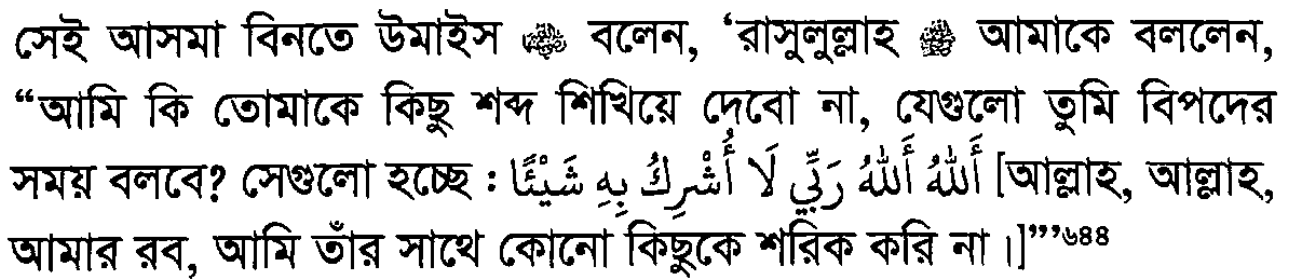 সেই আসমা বিনতে উমাইস বলেন, ‘রাসুলুল্লাহ ﷺ আমাকে বললেন,
“আমি কি তোমাকে কিছু শব্দ শিখিয়ে দেবো না, যেগুলো তুমি বিপদের
সময় বলবে? সেগুলো হচ্ছে : أَللهُ أَللهُ رَبِّي لَا أُشْرِكُ بِهِ شَيْئًا [আল্লাহ, আল্লাহ,
আমার রব, আমি তাঁর সাথে কোনো কিছুকে শরিক করি না।]”’৬৪৪